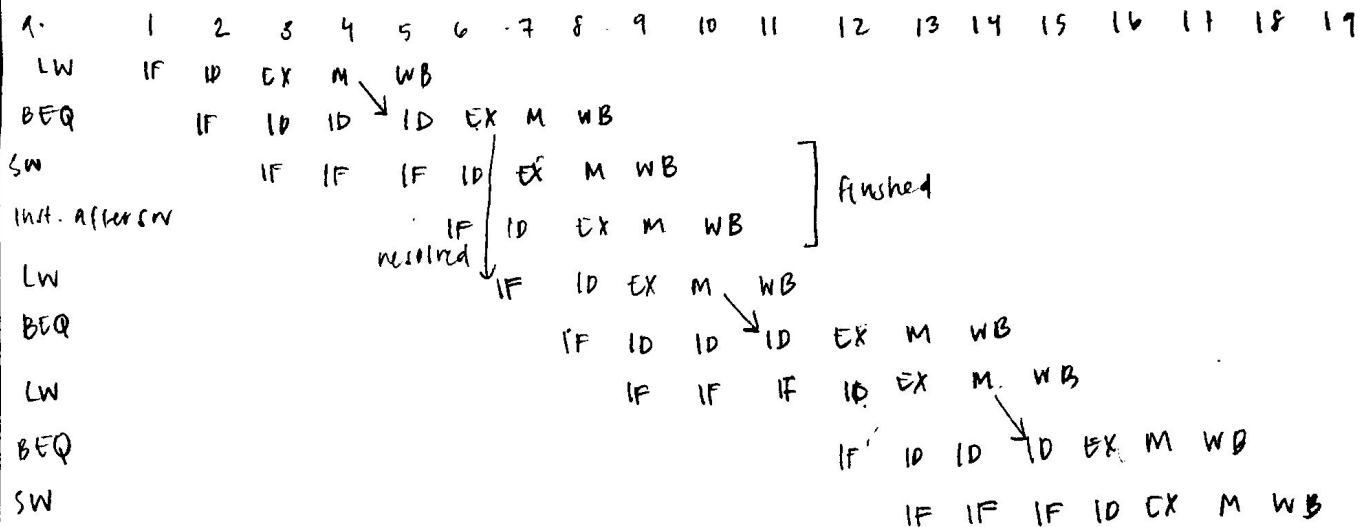 a. 1 2 3 4 5 6 7 8 9 10 11 12 13 14 15 16 17 18 19
LW IF ID EX M WB
BEQ IF ID ID ID EX M WB
SW IF IF IF ID EX M WB
flushed
Inst. After SW IF ID EX M WB
resolved
LW IF ID EX M WB
BEQ IF ID ID ID EX M WB
LW IF IF IF ID EX M. WB
BEQ IF ID ID ID EX M WB
SW IF IF IF ID EX M WB